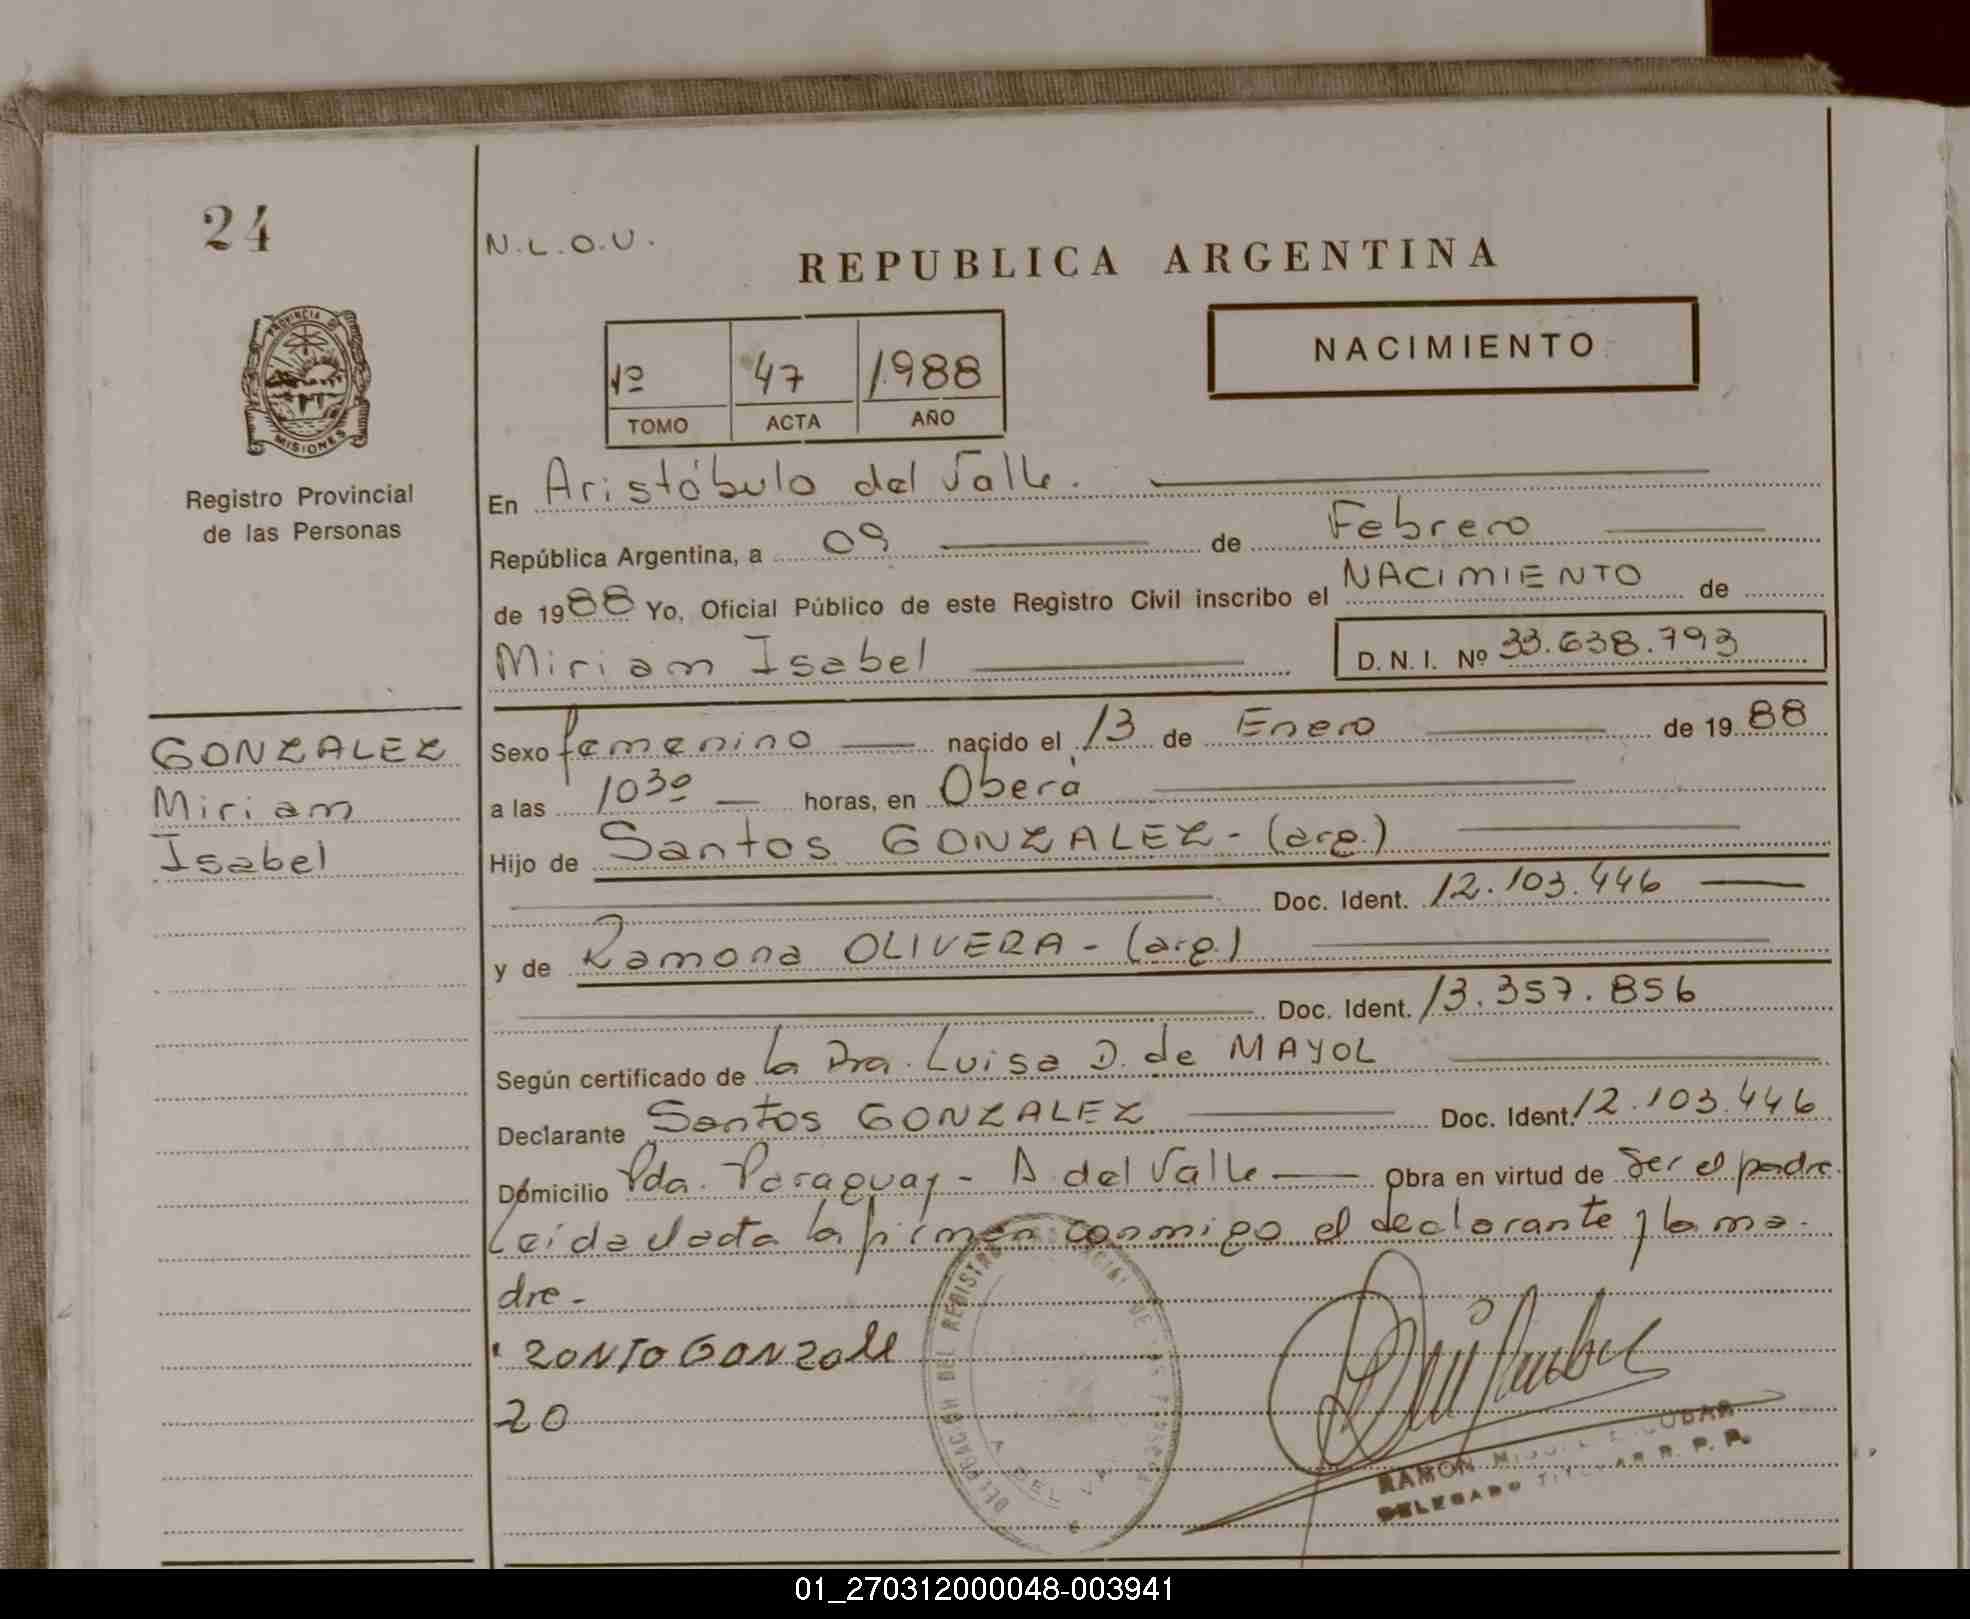 24
N.L.O.U.
REPUBLICA ARGENTINA
PROVINCIA DE
MISIONES
Registro Provincial
de las Personas
1º 47 1988
TOMO ACTA AÑO
NACIMIENTO
En Aristóbulo del Valle.
República Argentina, a 09 de Febrero
de 1988 Yo, Oficial Público de este Registro Civil inscribo el NACIMIENTO de
Miriam Isabel D. N. I. Nº 33.638.793
GONZALEZ
Miriam
Isabel
Sexo femenino nacido el 13 de Enero de 1988
a las 1030 horas, en Oberá
Hijo de Santos GONZALEZ - (arg.)
Doc. Ident. 12.103.446
y de Ramona OLIVERA - (arg.)
Doc. Ident. 13.357.856
Según certificado de la Dra. Luisa D. de MAYOL
Declarante Santos GONZALEZ Doc. Ident. 12.103.446
Domicilio Pda. Paraguay - A. del Valle Obra en virtud de ser el padre.
Leida el acta la firman conmigo el declarante y la ma-
dre-
RAMON MIGUEL ESCOBAR
DELEGADO TITULAR R. P. P.
01_270312000048-003941